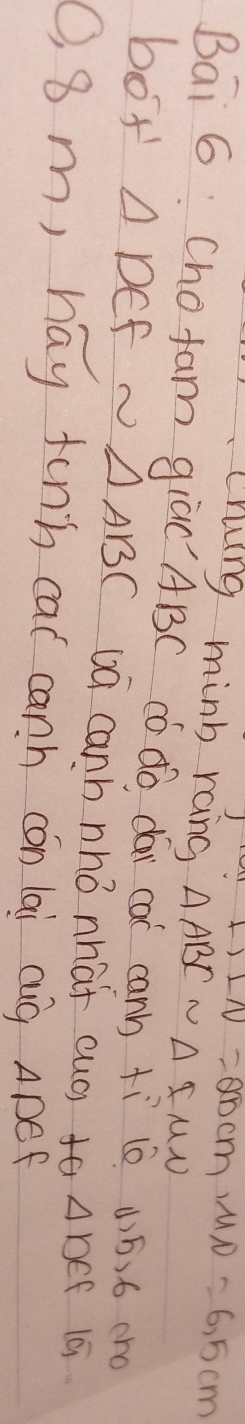 chứng minh rằng Δ ABC ~ Δ IMN
Bài 6 : Cho tam giác ABC có độ dài các cạnh tỉ lệ 4,5,6 cho
bót Δ DEF ~ Δ ABC và cạnh nhỏ nhất của Δ DEF là
0,8 m, hãy tính các cạnh còn lại của Δ DEF